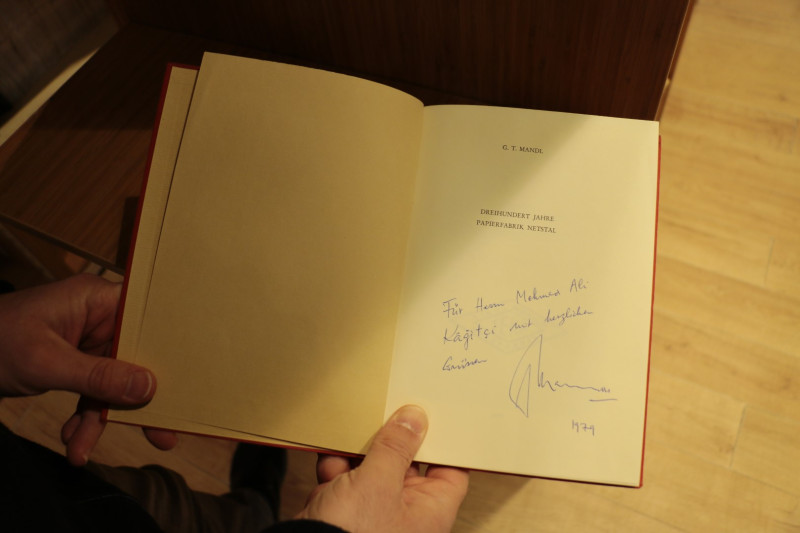 G. T. MANDL
DREIHUNDERT JAHRE
PAPIERFABRIK NETSTAL
Für Herrn Mehmed Ali
Kâğıtçi mit herzlichen
Grüssen
1979